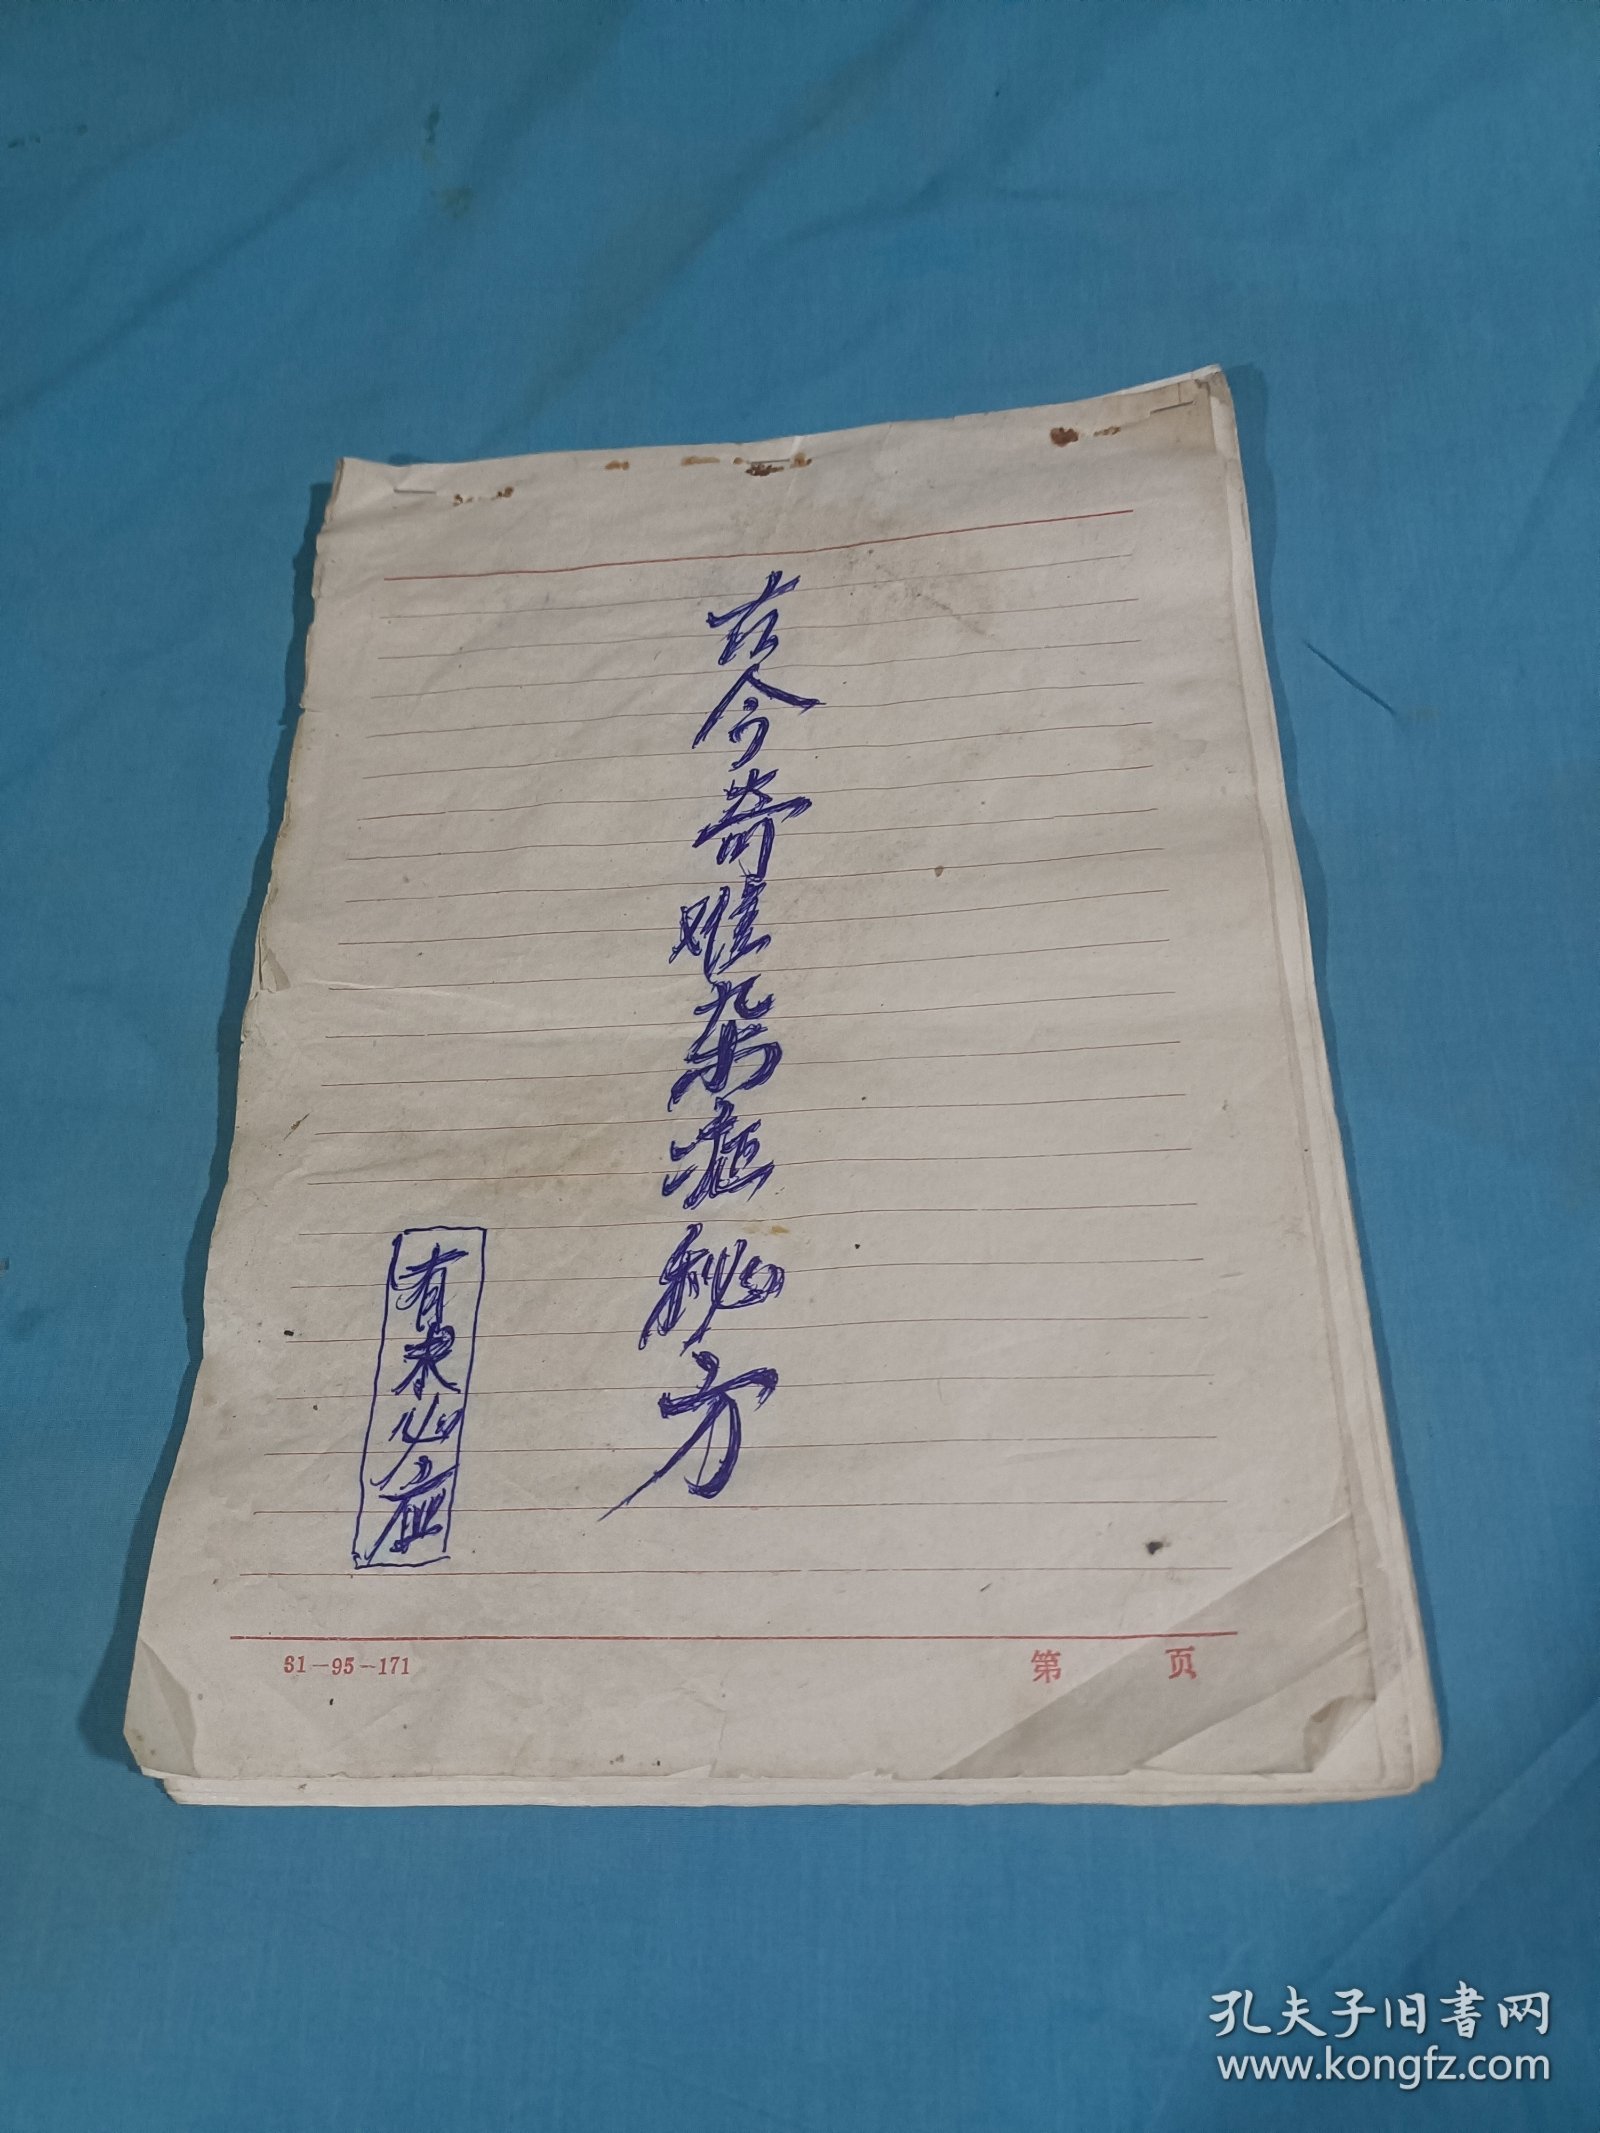 古今奇难杂症秘方
有求必应
31-95-171
第 页
孔夫子旧书网
www.kongfz.com